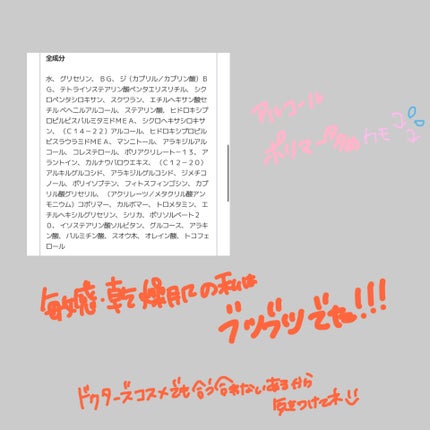 全成分
水、グリセリン、BG、ジ(カプリル/カプリン酸)B
G、テトライソステアリン酸ペンタエリスリチル、シク
ロペンタシロキサン、スクワラン、エチルヘキサン酸セ
チルベヘニルアルコール、ステアリン酸、ヒドロキシプ
ロピルビスパルミタミドMEA、シクロヘキサシロキサ
ン、(C14-22)アルコール、ヒドロキシプロピル
ビスラウラミドMEA、マンニトール、アラキジルアル
コール、コレステロール、ポリアクリレート-13、ア
ラントイン、カルナウバロウエキス、(C12-20)
アルキルグルコシド、アラキジルグルコシド、ジメチコ
ノール、ポリイソブテン、フィトスフィンゴシン、カプ
リル酸グリセリル、(アクリレーツ/メタクリル酸アン
モニウム)コポリマー、カルボマー、トロメタミン、エ
チルヘキシルグリセリン、シリカ、ポリソルベート2
0、イソステアリン酸ソルビタン、グルコース、アラキ
ン酸、パルミチン酸、スオウ木、オレイン酸、トコフェ
ロール
アルコール
ポリマー
敏感・乾燥肌の私は
ブツブツでた!!!
ドクターズコスメでも合う合わないあるから
気をつけてネ